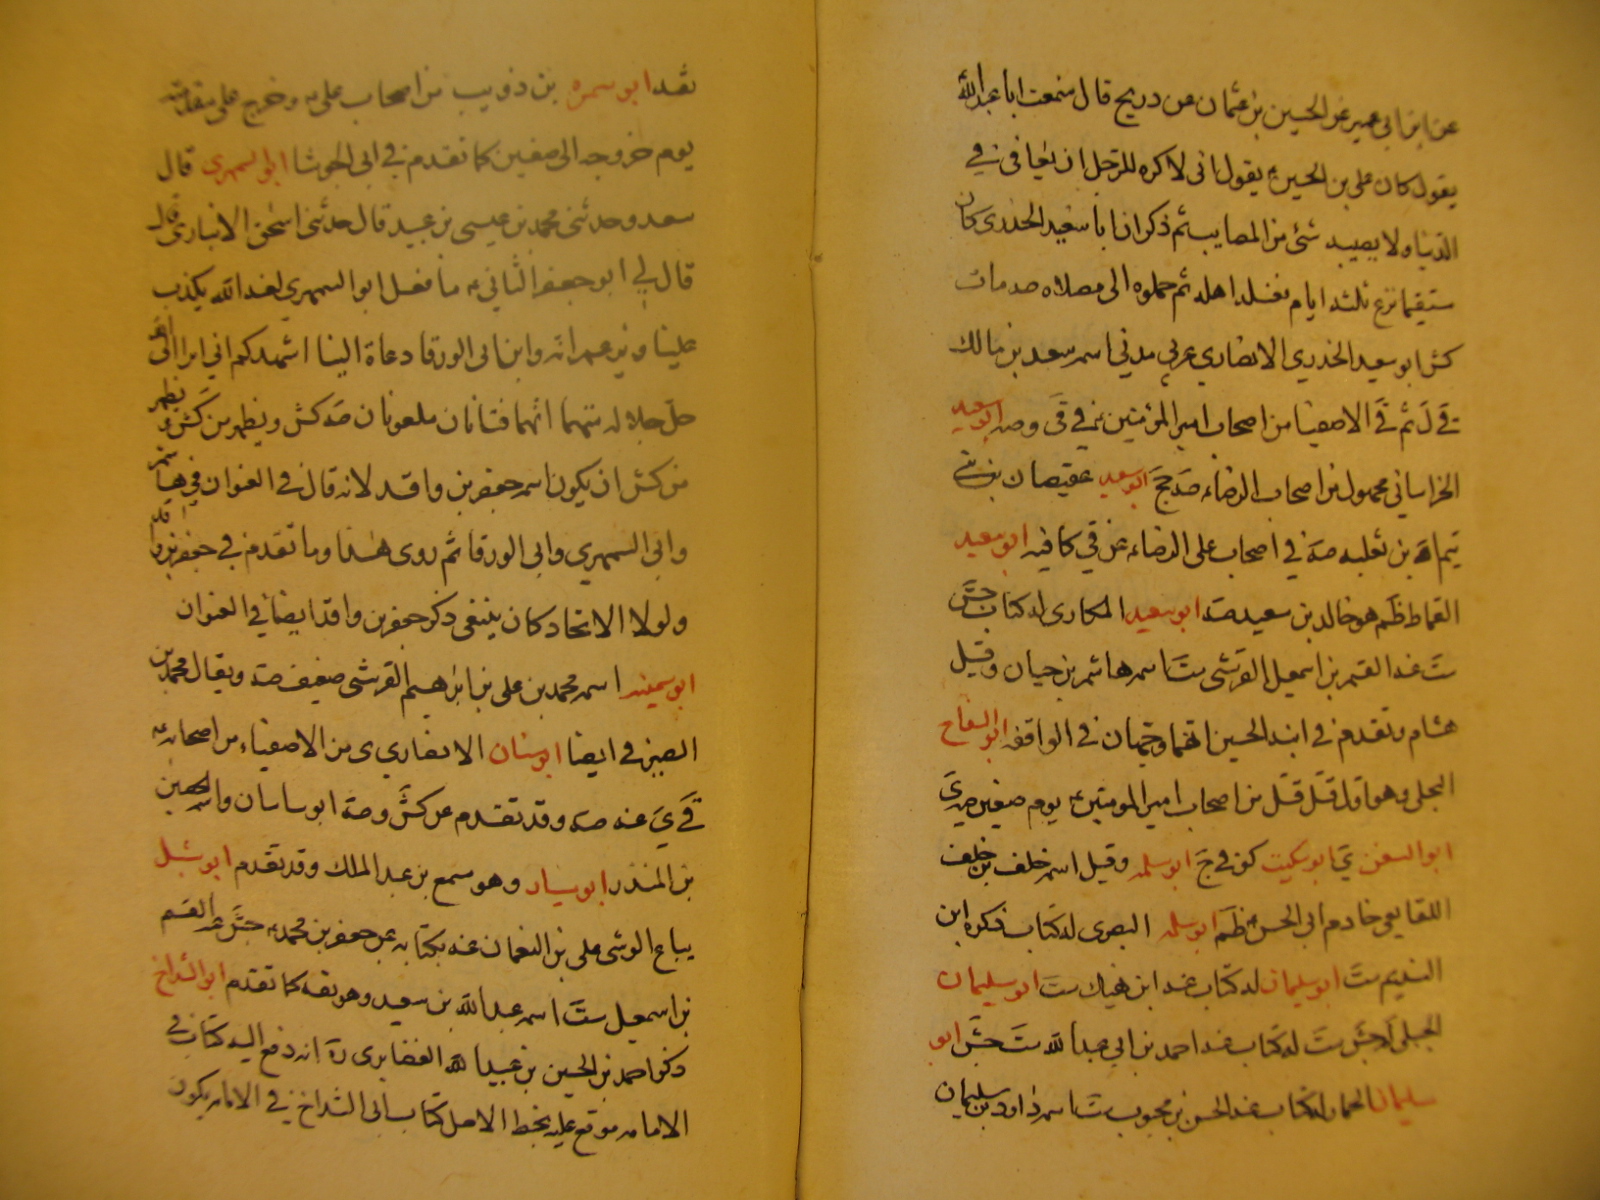 عن ابن ابي عمير عن الحسين بن عثمان عن ذريح قال سمعت ابا عبد الله
يقول كان علي بن الحسين ع يقول اني لاكره للرجل ان يعافى في
الدنيا ولا يصيبه شئ من المصايب ثم ذكر ان ابا سعيد الخدرى كان
مستقيما نزع ثلثه ايام فغسله اهله ثم حملوه الى مصلاه فمات
كش ابو سعيد الخدري الانصاري عربي مدني اسمه سعد بن مالك
في ل ثم في الاصفيا من اصحاب امير المؤمنين ع في قى وصه ابو سعيد
الخراساني مجهول من اصحاب الرضاء صه جخ ابو سعيد عقيصان من بني
تيم الله بن ثعلبه صه في اصحاب على الرضاء عن قي كافيه ابو سعيد
القماط ظم هو خالد بن سعيد صه ابو سعيد المكارى له كتاب جش
ست عنه القسم بن اسمعيل القرشى ست اسمه هاشم بن حيان وقيل
هشام وتقدم في ابنه الحسين انهما وجهان في الواقفه ابو السفاح
البجلى وهو اول قتيل قتل من اصحاب امير المومنين ع يوم صفين صه ى
ابو السفن ي ابو سكيت كوفي ج ابو سلمه وقيل اسمه خلف بن خلف
اللفايفي خادم ابي الحسن ع ظم ابو سلمه البصرى له كتاب ذكره ابن
النديم ست ابو سليمان له كتاب عنه ابن نهيك ست ابو سليمان
الجبلى جش ست له كتاب عنه احمد بن ابي عبد الله ست جش ابو
سليمان الحمار له كتاب عنه الحسن بن محبوب ست اسمه داود بن سليمان
ثقه ابو سمره بن ذويب من اصحاب على ع وخرج على مقدمته
يوم خروجه الى صفين كما تقدم في ابي الجوشا ابو السمهرى قال
سعد وحدثنى محمد بن عيسى بن عبيد قال حدثنى اسحق الانبارى قال
قال لي ابو جعفر الثاني ع ما فعل ابو السمهري لعنه الله يكذب
علينا ويزعم انه وابن ابى الورقا دعاة الينا اشهدكم اني ابرا الى الله
جل جلاله منهما انهما فتانان ملعونان صه كش ويظهر من كش و
من كش ان يكون اسمه جعفر بن واقد لانه قال في العنوان في هاشم
وابى السمهري وابى الورقا ثم روى هذا وما تقدم في جعفر بن واقد
ولولا الاتحاد كان ينبغي ذكر جعفر بن واقد ايضا في العنوان
ابو سمينه اسمه محمد بن على بن ابرهيم القرشى ضعيف صه ويقال محمد بن
الصيرفي ايضا ابو سنان الانصارى ى من الاصفياء من اصحابه ع
في ي عنه صه وقد تقدم عن كش وصه ابو ساسان واسمه الحصين
بن المنذر ابو سيار وهو مسمع بن عبد الملك وقد تقدم ابو شبل
بياع الوشى على بن النعمان عنه بكتابه عن جعفر بن محمد ع جش عنه القسم
بن اسمعيل ست اسمه عبد الله بن سعيد وهو ثقه كما تقدم ابو الشداخ
ذكر احمد بن الحسين بن عبيد الله الغضايرى ره انه دفع اليه كتابا في
الامامه موقع عليه بخط الاصل كتاب ابى الشداخ في الامامه يكون